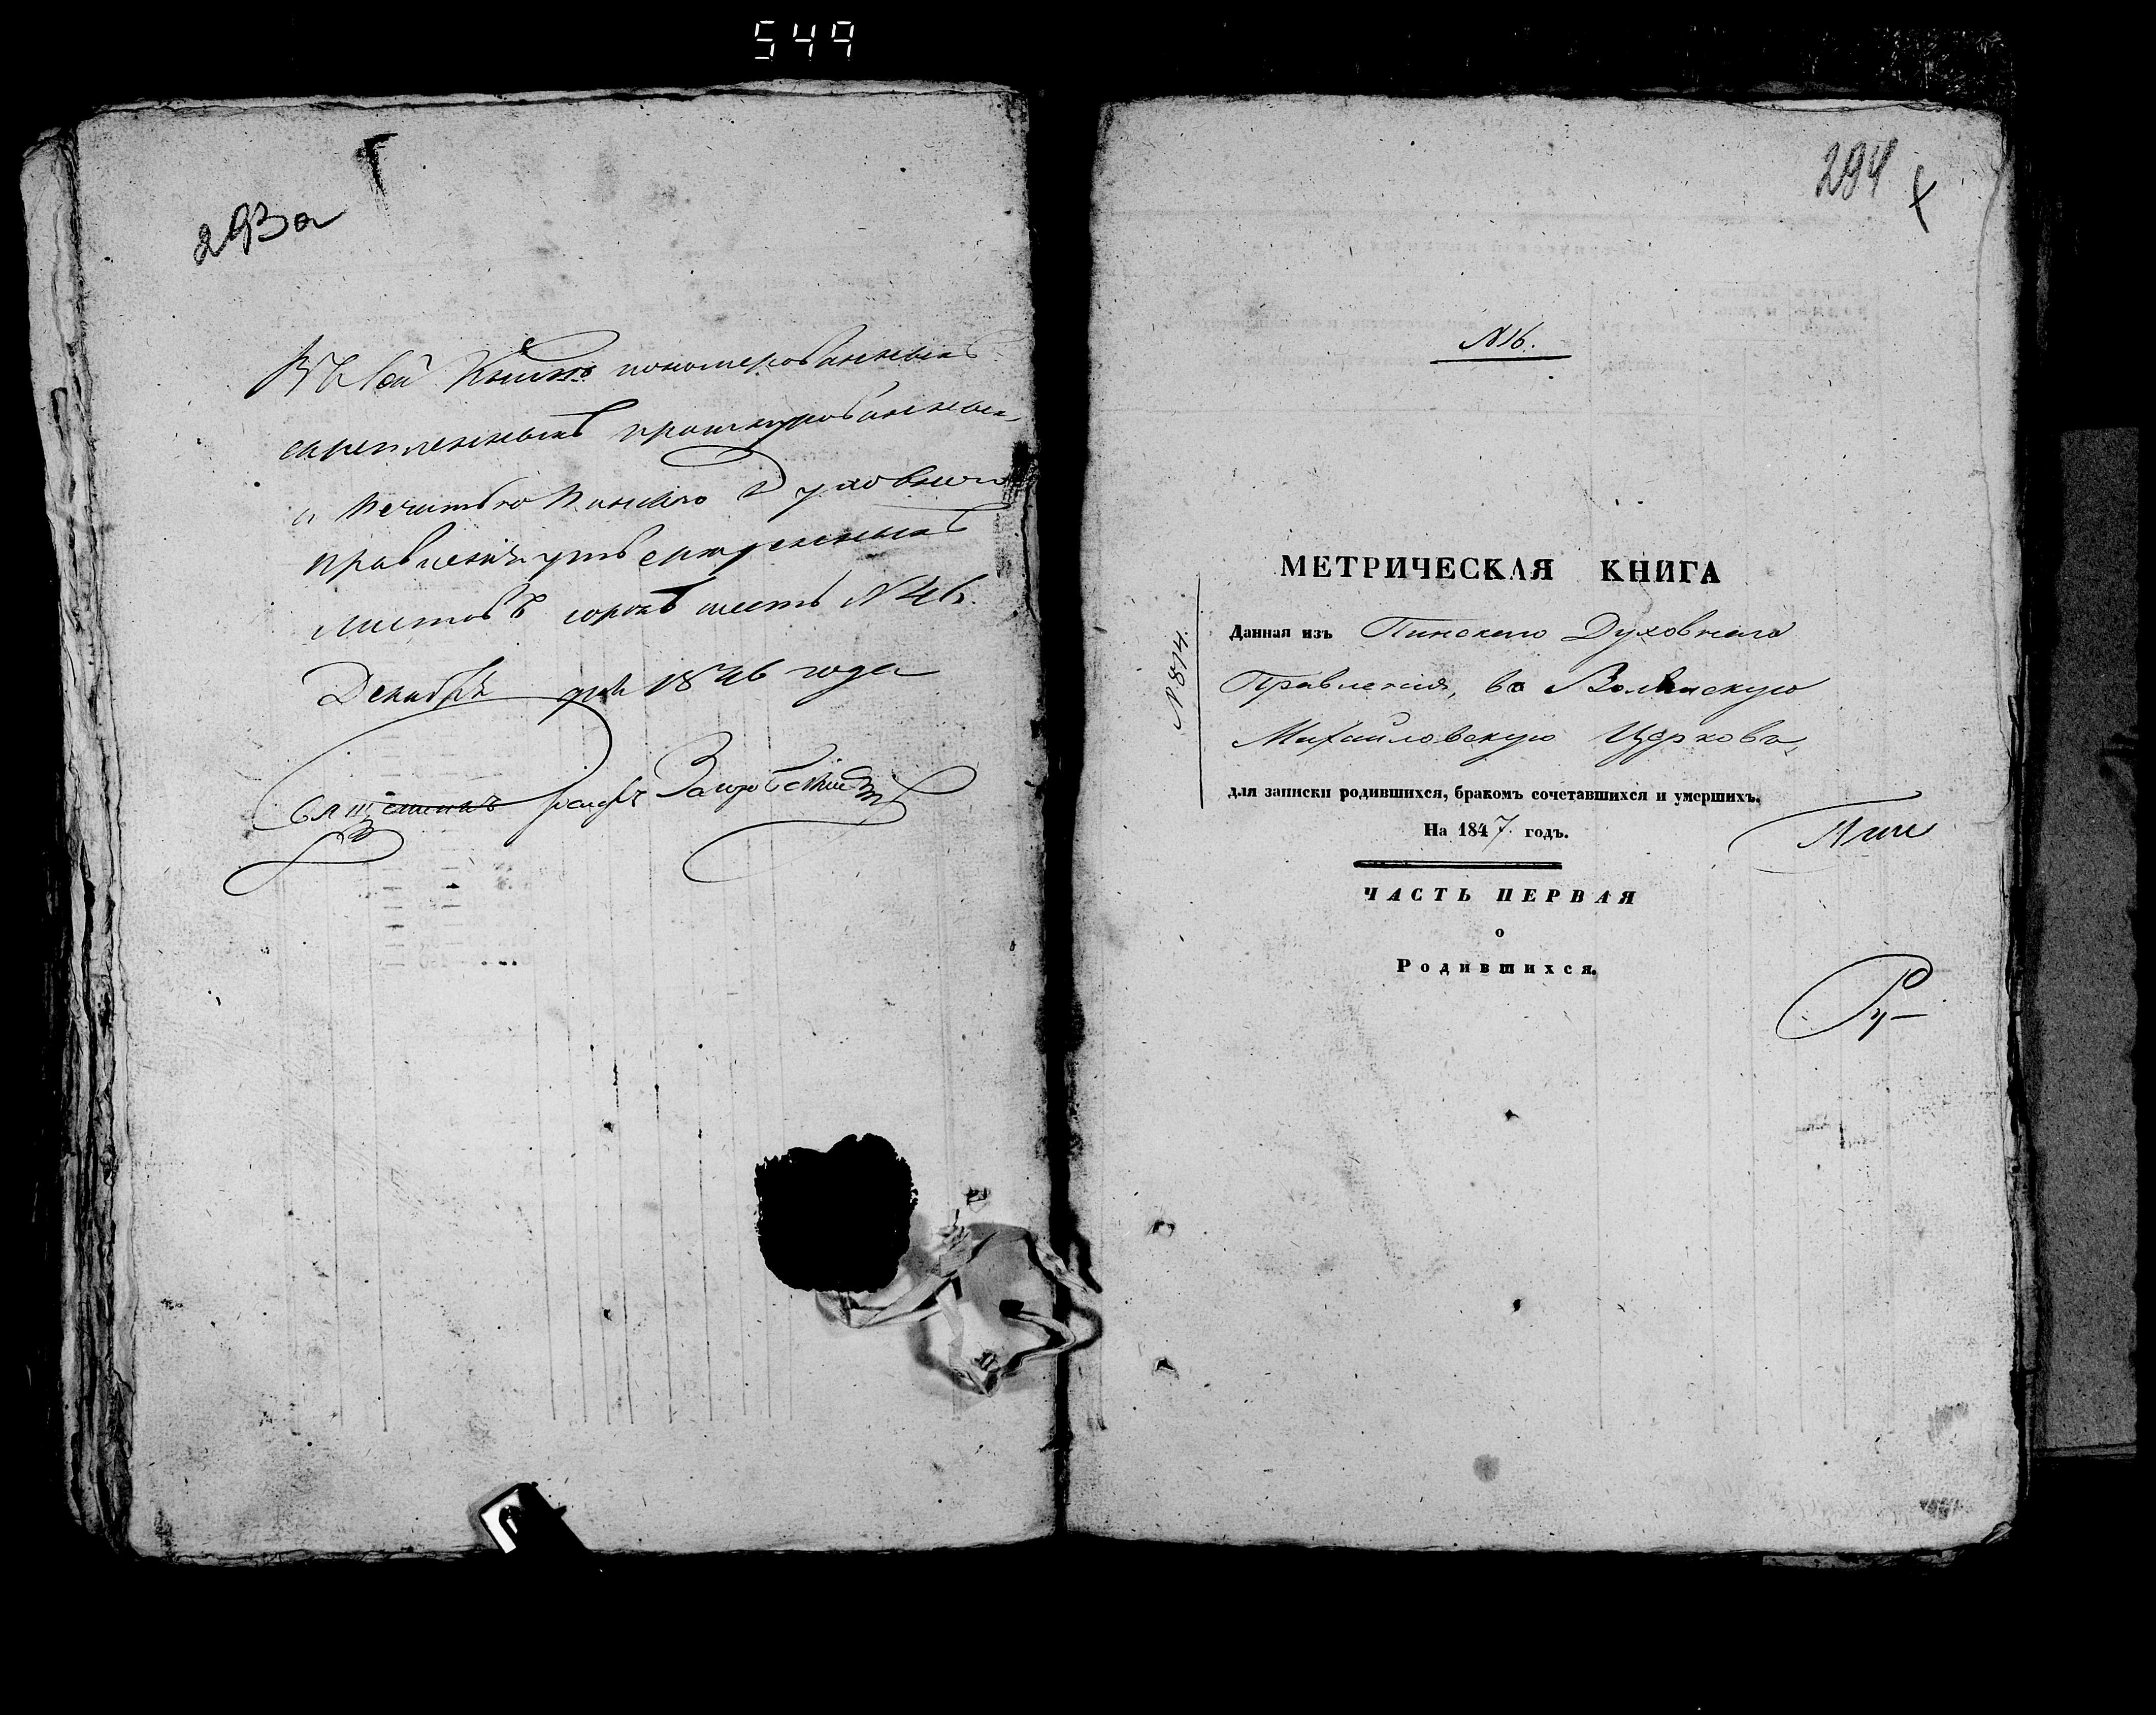 549
293а
Въ сей Книге пономерованныхъ
скрепленныхъ прошнурованных
и печатью Пинскаго Духовнаго
правления утвержденныхъ
листовъ сорокъ шесть №46.
Декабря дня 1846 года
Священникъ
294
№16.
МЕТРИЧЕСКАЯ КНИГА
№ 874.
Данная изъ Пинскаго Духовнаго
Правления, во Волянскую
Михайловскую Церковь,
для записки родившихся, бракомъ сочетавшихся и умершихъ.
На 1847 годъ.
ЧАСТЬ ПЕРВАЯ
о
Родившихся.